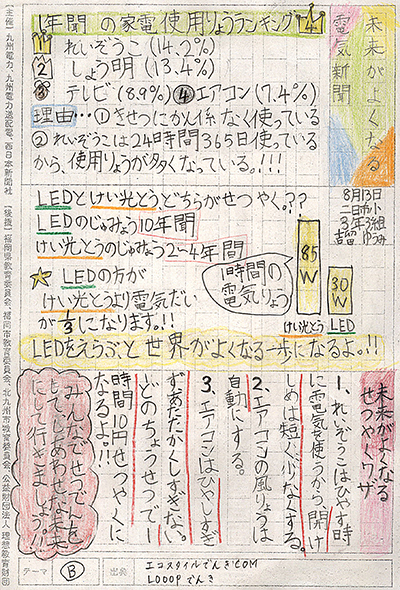 未来がよくなる
電気新聞
8月13日
二日市小
3年3組
1年間の家電使用りょうランキング
1 れいぞうこ(14.2%)
2 しょう明(13.4%)
3 テレビ(8.9%) ④エアコン(7.4%)
理由…①きせつにかん係なく使っている
②れいぞうこは24時間365日使っている
から、使用りょうが多くなっている。!!!
LEDとけい光とう、どちらがせつやく。??
LEDのじゅみょう10年間
けい光とうのじゅみょう2〜4年間
★LEDの方が
けい光とうより電気だい
が1/3になります。!!
1時間の
電気りょう
85W
30W
けい光とう LED
LEDをえらぶと世界がよくなる一歩になるよ。!!
未来がよくなる
せつやくワザ
1、れいぞうこはひやす時
に電気を使うから、開け
しめは短く少なくする。
2、エアコンの風りょうは
自動にする。
3、エアコンはひやしすぎ
ずあたためすぎない。
どのちょうせつで一
時間10円せつやくに
なるよ。!!
みんなでせつでんを
して、しあわせな未来
にして行きましょう。!!
テーマ B 出典 エコスタイルでんきCOM
LOOOPでんき
【主催】九州電力、九州電力送配電、西日本新聞社 【後援】福岡県教育委員会、福岡市教育委員会、北九州市教育委員会、公益財団法人 理想教育財団